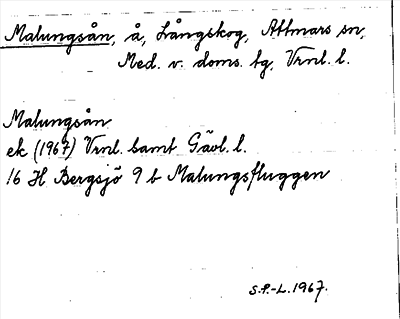 Malungsån, å, Långskog, Attmars sn,
Med. v. doms. tg, Vrnl. l.
Malungsån
ek (1967) Vrnl. samt Gävl. l.
16 H Bergsjö 9 b Malungsfluggen
S.P.-L. 1967.